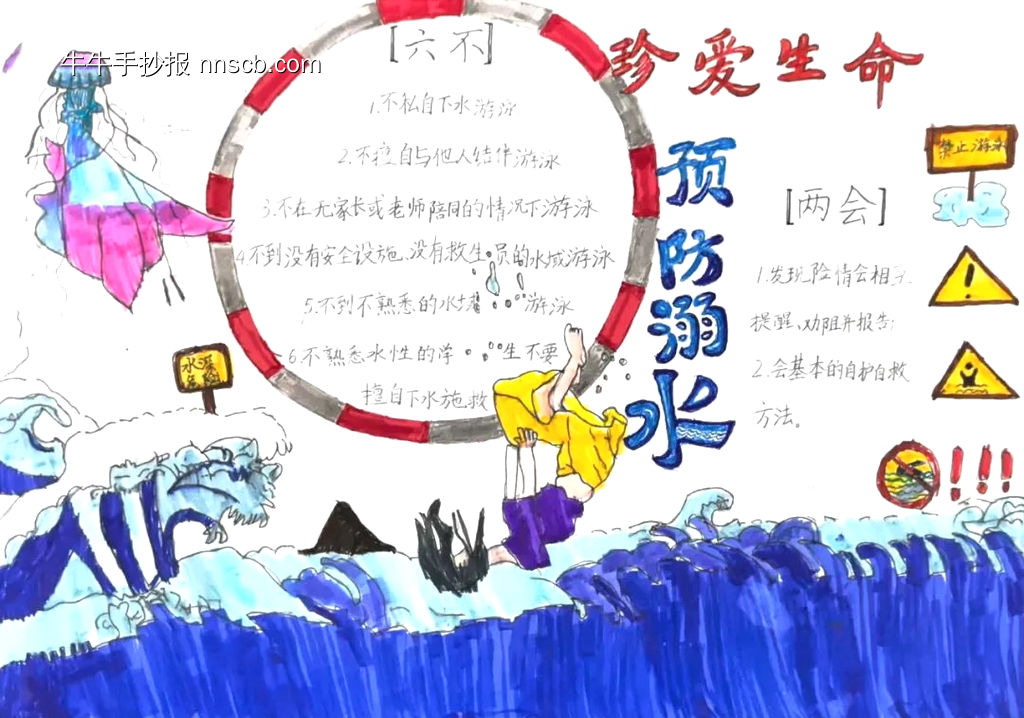 牛牛手抄报 nnscb.com
[六不]
1.不私自下水游泳
2.不擅自与他人结伴游泳
3.不在无家长或老师陪同的情况下游泳
4.不到没有安全设施、没有救生员的水域游泳
5.不到不熟悉的水域游泳
6.不熟悉水性的学生不要
擅自下水施救
珍爱生命
预
防
溺
水
[两会]
1.发现险情会相互
提醒、劝阻并报告;
2.会基本的自护自救
方法。
禁止游泳
水深
危险
!
!!!